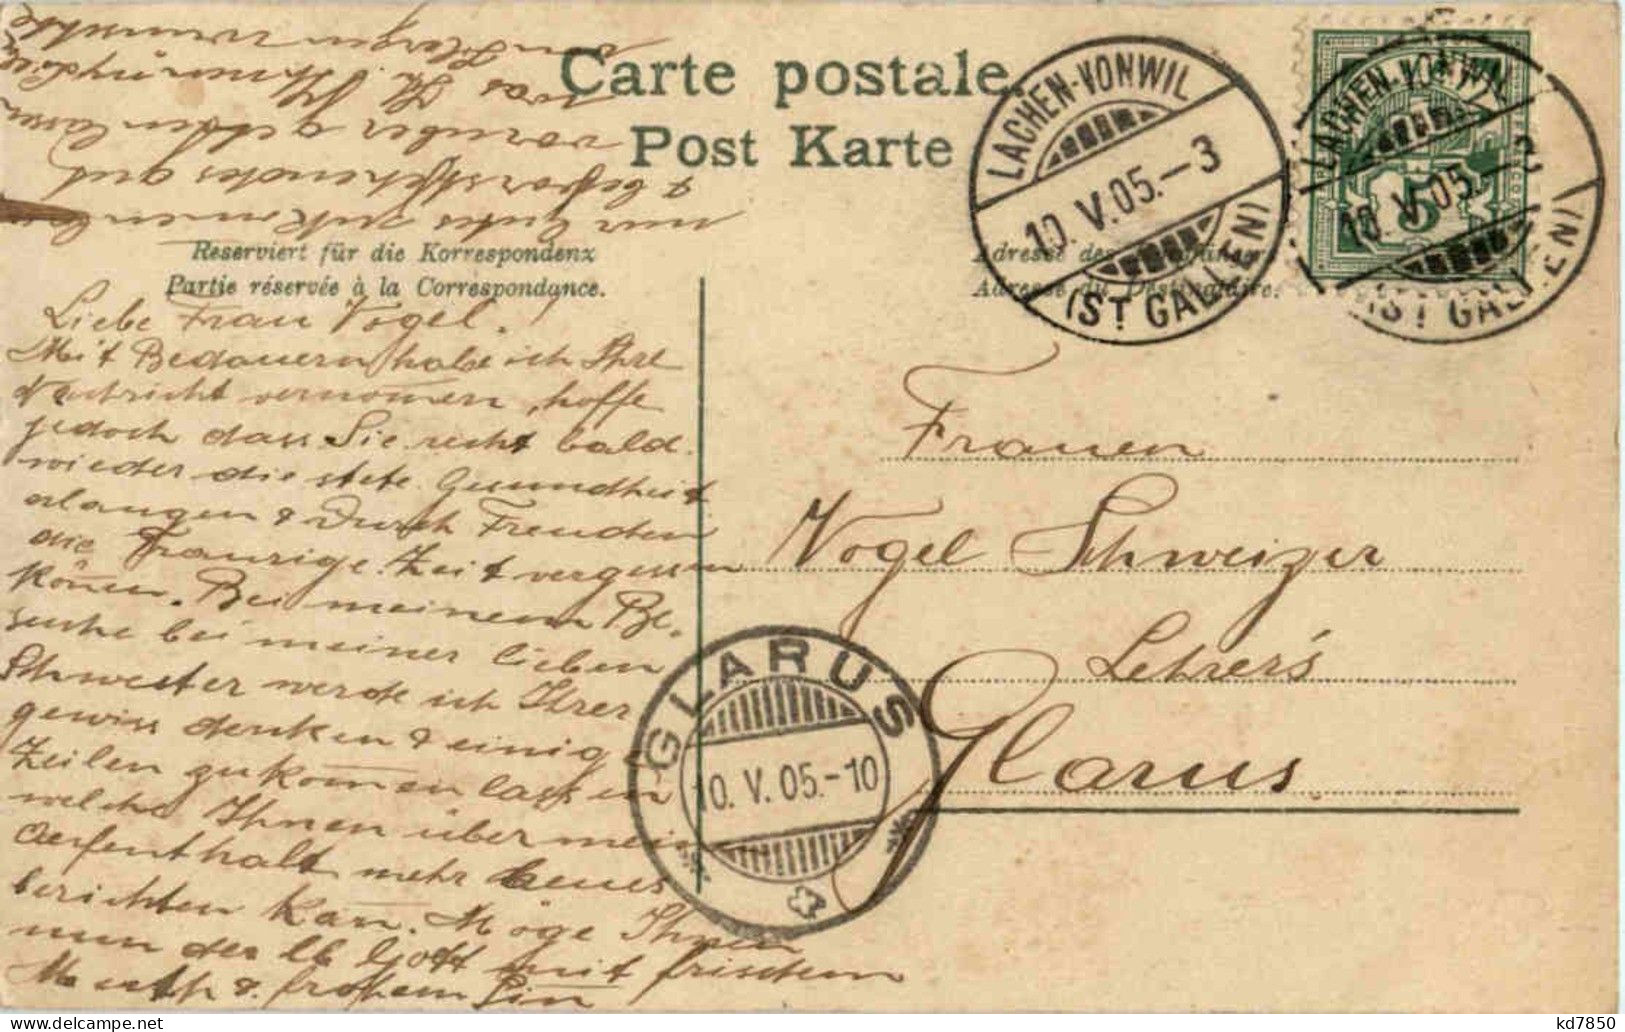 Carte postale.
Post Karte
LACHEN-VONWIL
10. V. 05.-3
(ST GALLEN)
LACHEN-VONWIL
10. V. 05.-3
(ST GALLEN)
5
Reserviert für die Korrespondenz
Partie réservée à la Correspondance.
Adresse des
Adresse du Destinataire.
Liebe Frau Vogel!
Mit Bedauern habe ich Ihre
Nachricht vernom̄en, hoffe
jedoch dass Sie recht bald
wieder die stete Gesundheit
erlangen & durch Freuden
die Traurige Zeit vergessen
kön̄en. Bei meinem Be-
suche bei meiner lieben
Schwester werde ich Ihrer
gewiss denken & einige
Zeilen zukom̄en lassen
welche Ihnen über mein
Aufenthalt mehr
berichten kan̄. Möge Ihnen
nun der lb Gott mit frischem
Muth & frohem Sin̄
nur Gutes zukom̄en lassen
& bevorstehendes gut
vorüber gehen lassen
was
von Herzen wünscht
Frauen
Vogel Schweizer
Lehrer's
Glarus.
GLARUS
10. V. 05.-10
kd7850